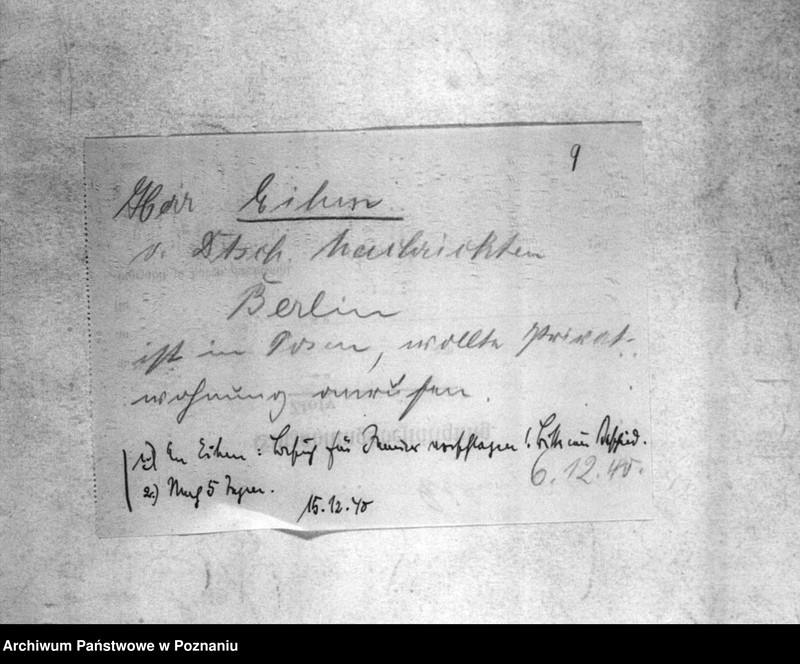 9
Herr Eihm
v. Dtsch. Nachrichten
Berlin
ist in Posen, wollte Privat-
wohnung anrufen.
6.12.40.
1.) An Eihm: Besuch für Januar vorschlagen! Bitte um Bescheid.
2.) Nach 5 Tagen.
15.12.40
Archiwum Państwowe w Poznaniu